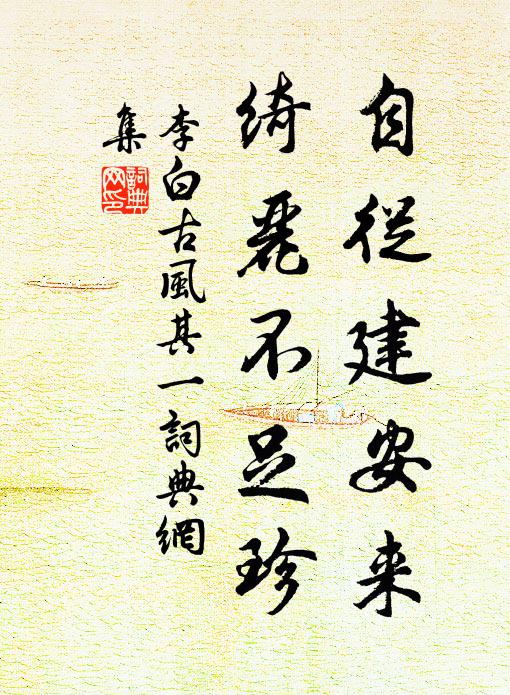 自從建安来
綺麗不足珍
李白古風其一詞典網
集
詞典
网印